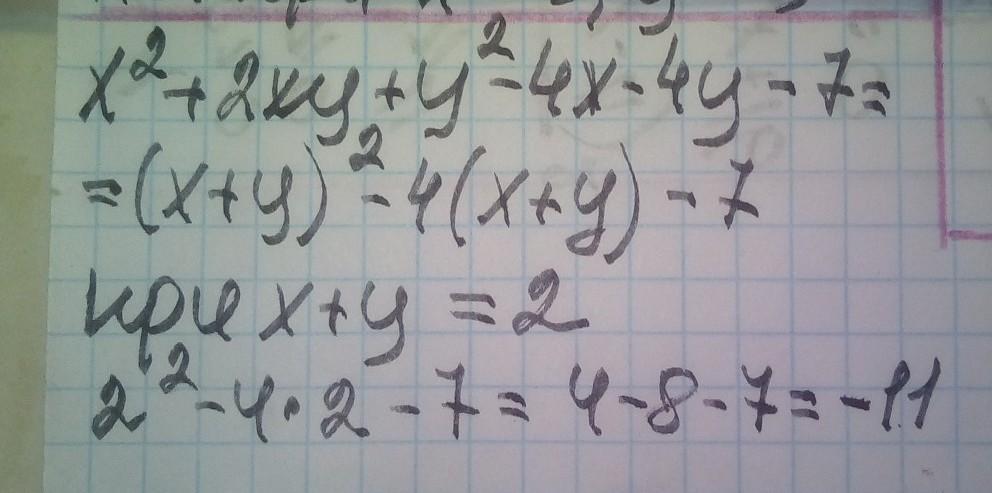 x²+2xy+y²-4x-4y-7=
=(x+y)²-4(x+y)-7
при x+y=2
2²-4·2-7=4-8-7=-11